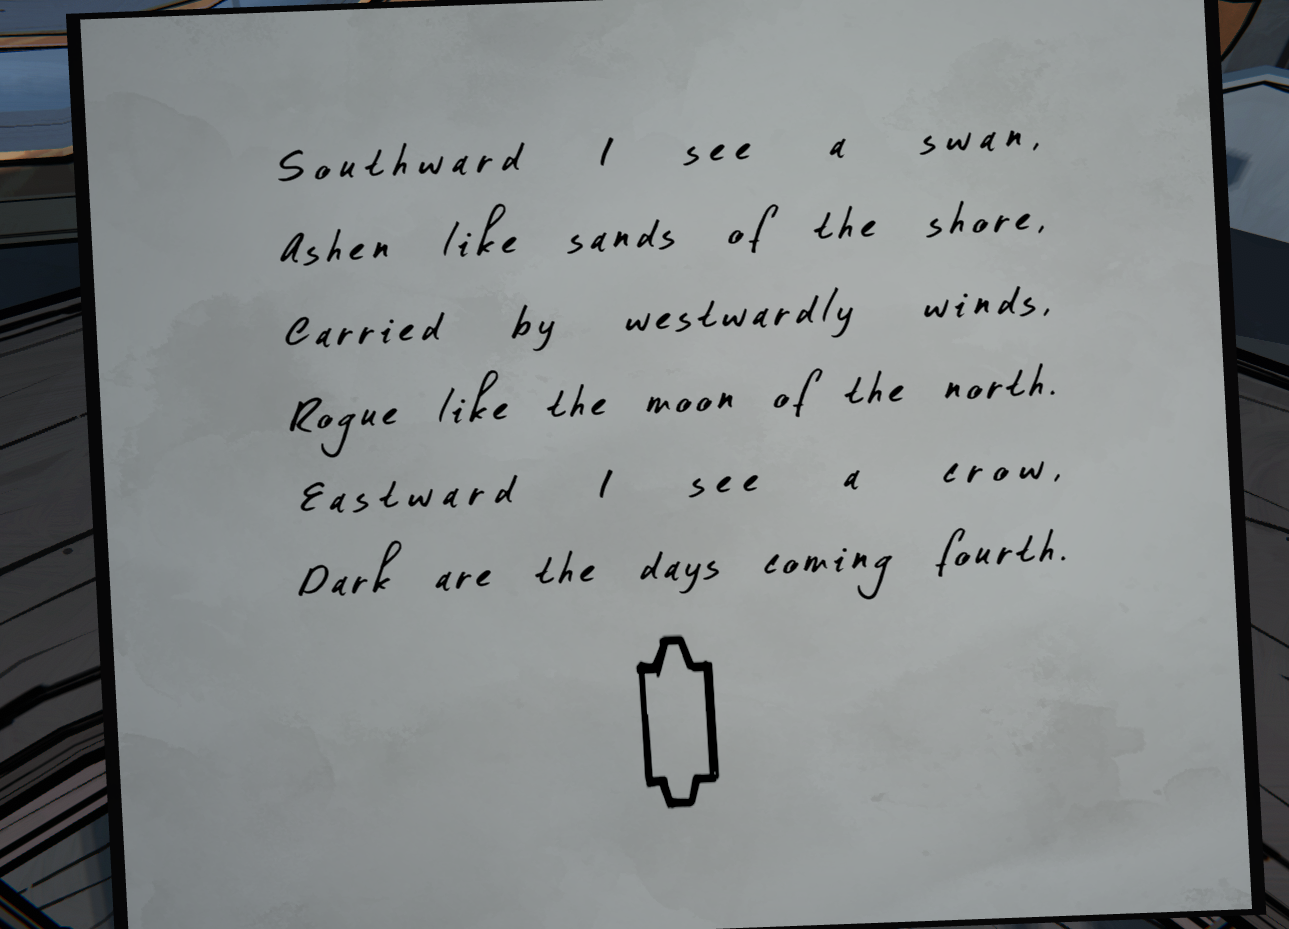 Southward I see a swan,
Ashen like sands of the shore,
Carried by westwardly winds,
Rogue like the moon of the north.
Eastward I see a crow,
Dark are the days coming fourth.